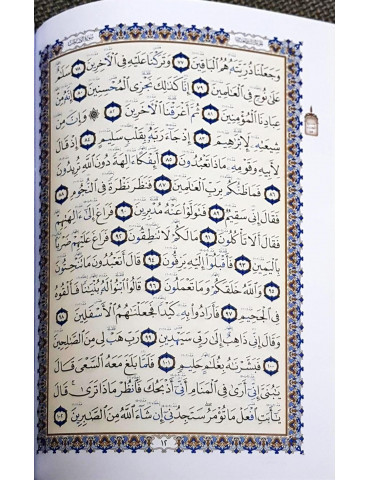 وَجَعَلْنَا ذُرِّيَّتَهُ هُمُ الْبَاقِينَ ٧٧ وَتَرَكْنَا عَلَيْهِ فِي الْآخِرِينَ ٧٨ سَلَامٌ
عَلَىٰ نُوحٍ فِي الْعَالَمِينَ ٧٩ إِنَّا كَذَٰلِكَ نَجْزِي الْمُحْسِنِينَ ٨٠ إِنَّهُ مِنْ
عِبَادِنَا الْمُؤْمِنِينَ ٨١ ثُمَّ أَغْرَقْنَا الْآخَرِينَ ٨٢ ۞ وَإِنَّ مِنْ
شِيعَتِهِ لَإِبْرَاهِيمَ ٨٣ إِذْ جَاءَ رَبَّهُ بِقَلْبٍ سَلِيمٍ ٨٤ إِذْ قَالَ
لِأَبِيهِ وَقَوْمِهِ مَاذَا تَعْبُدُونَ ٨٥ أَئِفْكًا آلِهَةً دُونَ اللَّهِ تُرِيدُونَ
٨٦ فَمَا ظَنُّكُمْ بِرَبِّ الْعَالَمِينَ ٨٧ فَنَظَرَ نَظْرَةً فِي النُّجُومِ ٨٨
فَقَالَ إِنِّي سَقِيمٌ ٨٩ فَتَوَلَّوْا عَنْهُ مُدْبِرِينَ ٩٠ فَرَاغَ إِلَىٰ آلِهَتِهِمْ
فَقَالَ أَلَا تَأْكُلُونَ ٩١ مَا لَكُمْ لَا تَنْطِقُونَ ٩٢ فَرَاغَ عَلَيْهِمْ ضَرْبًا
بِالْيَمِينِ ٩٣ فَأَقْبَلُوا إِلَيْهِ يَزِفُّونَ ٩٤ قَالَ أَتَعْبُدُونَ مَا تَنْحِتُونَ
٩٥ وَاللَّهُ خَلَقَكُمْ وَمَا تَعْمَلُونَ ٩٦ قَالُوا ابْنُوا لَهُ بُنْيَانًا فَأَلْقُوهُ
فِي الْجَحِيمِ ٩٧ فَأَرَادُوا بِهِ كَيْدًا فَجَعَلْنَاهُمُ الْأَسْفَلِينَ ٩٨
وَقَالَ إِنِّي ذَاهِبٌ إِلَىٰ رَبِّي سَيَهْدِينِ ٩٩ رَبِّ هَبْ لِي مِنَ الصَّالِحِينَ
١٠٠ فَبَشَّرْنَاهُ بِغُلَامٍ حَلِيمٍ ١٠١ فَلَمَّا بَلَغَ مَعَهُ السَّعْيَ قَالَ
يَا بُنَيَّ إِنِّي أَرَىٰ فِي الْمَنَامِ أَنِّي أَذْبَحُكَ فَانْظُرْ مَاذَا تَرَىٰ ۚ قَالَ
يَا أَبَتِ افْعَلْ مَا تُؤْمَرُ ۖ سَتَجِدُنِي إِنْ شَاءَ اللَّهُ مِنَ الصَّابِرِينَ ١٠٢
١٢